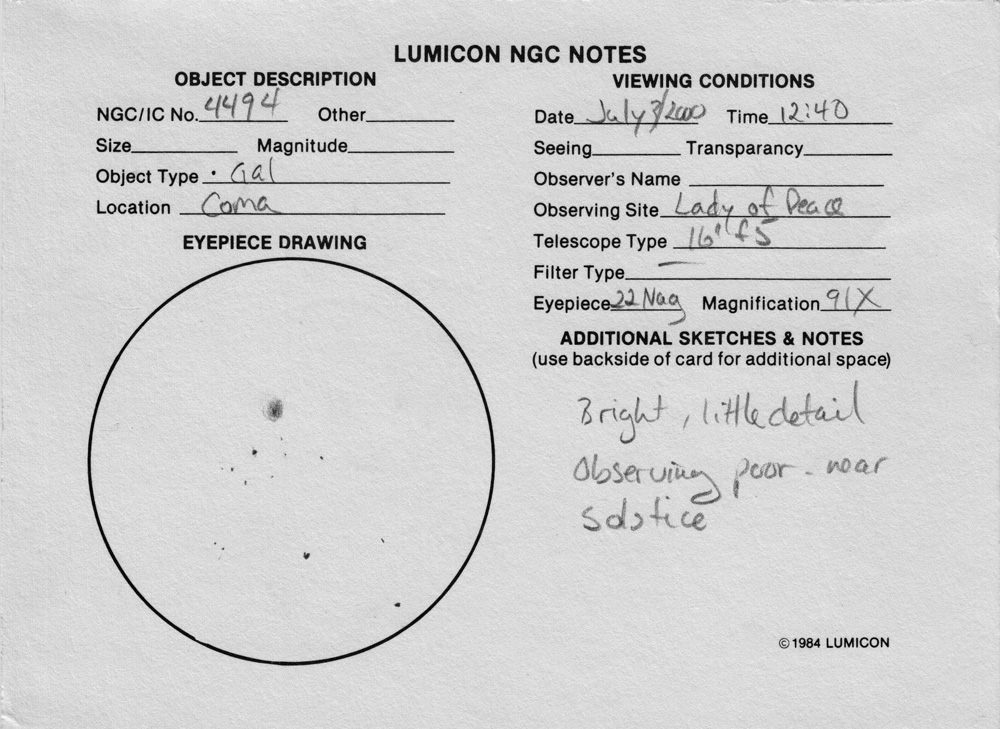 LUMICON NGC NOTES
OBJECT DESCRIPTION
NGC/IC No. 4494 Other
Size Magnitude
Object Type · Gal
Location Coma
EYEPIECE DRAWING
VIEWING CONDITIONS
Date July 3/2000 Time 12:40
Seeing Transparancy
Observer's Name
Observing Site Lady of Peace
Telescope Type 16" f5
Filter Type —
Eyepiece 22 Nag Magnification 91X
ADDITIONAL SKETCHES & NOTES
(use backside of card for additional space)
Bright, little detail
Observing poor - near
solstice
©1984 LUMICON